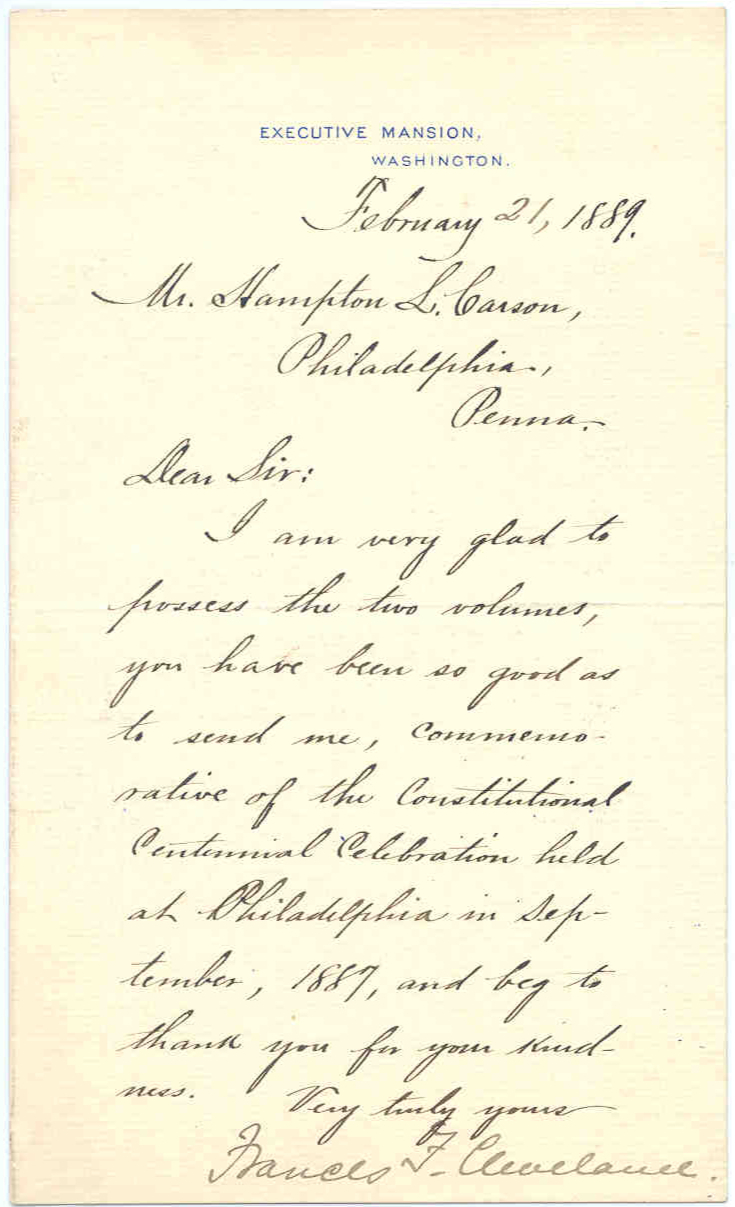 EXECUTIVE MANSION,
WASHINGTON.
February 21, 1889.
Mr. Hampton L. Carson,
Philadelphia,
Penna.
Dear Sir:
I am very glad to
possess the two volumes,
you have been so good as
to send me, commemo-
rative of the Constitutional
Centennial Celebration held
at Philadelphia in Sep-
tember, 1887, and beg to
thank you for your kind-
ness. Very truly yours
Frances F. Cleveland.